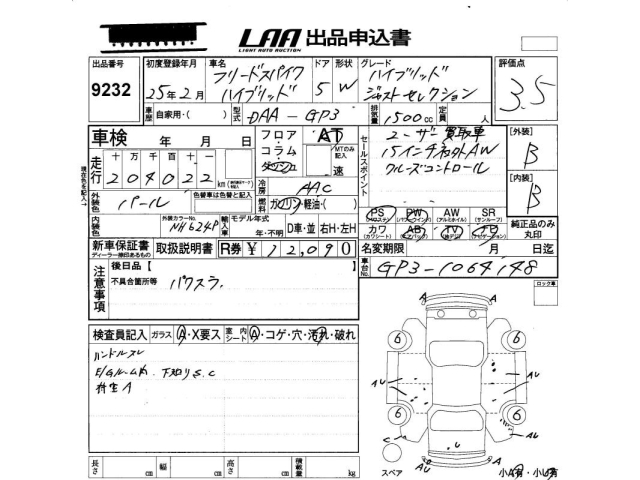 LAA 出品申込書
LIGHT AUTO AUCTION
出品番号
9232
初度登録年月
25年2月
車名
フリードスパイク
ハイブリッド
ドア
5
形状
W
グレード
ハイブリッド
ジャストセレクション
評価点
3.5
車歴
自家用・( )
型式
DAA-GP3
排気量
1500cc
定員
人
車検 年 月 日
フロア・コラム・
AT
MTのみ記入
速
セールスポイント
ユーザー買取車
15インチ社外AW
クルーズコントロール
[外装]
B
[内装]
B
走行
十万千百十一
204022
km
現在色を記入
外装色
パール
色替車は色替と記入
冷房
AAC
燃料
ガソリン・軽油・( )
内装色
外装カラーNo.
NH624P
輸入車
モデル年式
年・不明
D車・並 右H・左H
PS
PW
AW
(アルミホイル)
SR
(サンルーフ)
カワ
(カワシート)
AB
TV
純正品のみ
丸印
新車保証書
ディーラー捺印あるもの
取扱説明書
R券 ¥ 12,090
名変期限 月 日迄
車台No.
GP3-1064148
注意事項
後日品【 】
不具合箇所等
パワスラ.
ロック車
検査員記入
ガラス A・X要ス
室内シート A・コゲ・穴・汚れ・破れ
ハンドルスレ
E/Gルーム内. 下廻りS.C
A
A
6
6
6
6
AU
AU
AU
C
スペア
AU
A
小A有・小U有
長さ cm
幅 cm
高さ cm
積載量 kg